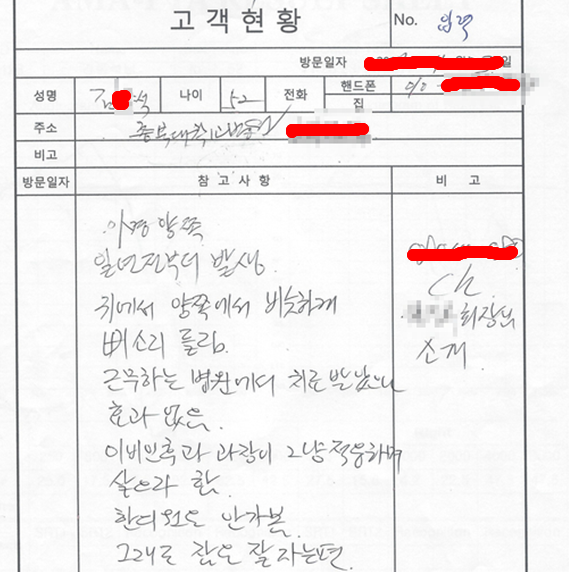 고객현황
No. 입력
방문일자 일
성명 김 석 나이 52 전화 핸드폰 010 -
집
주소 중부대학교병원
비고
방문일자 참고사항 비고
이명 양쪽
일년전부터 발생.
귀에서 양쪽에서 비슷하게
삐소리 들림.
근무하는 병원에서 치료 받았으나
효과 없음.
이비인후과 과장이 그냥 적응하며
살으라 함.
한의원은 안가봄.
그래도 잠은 잘 자는편.
Ch
회장님
소개.